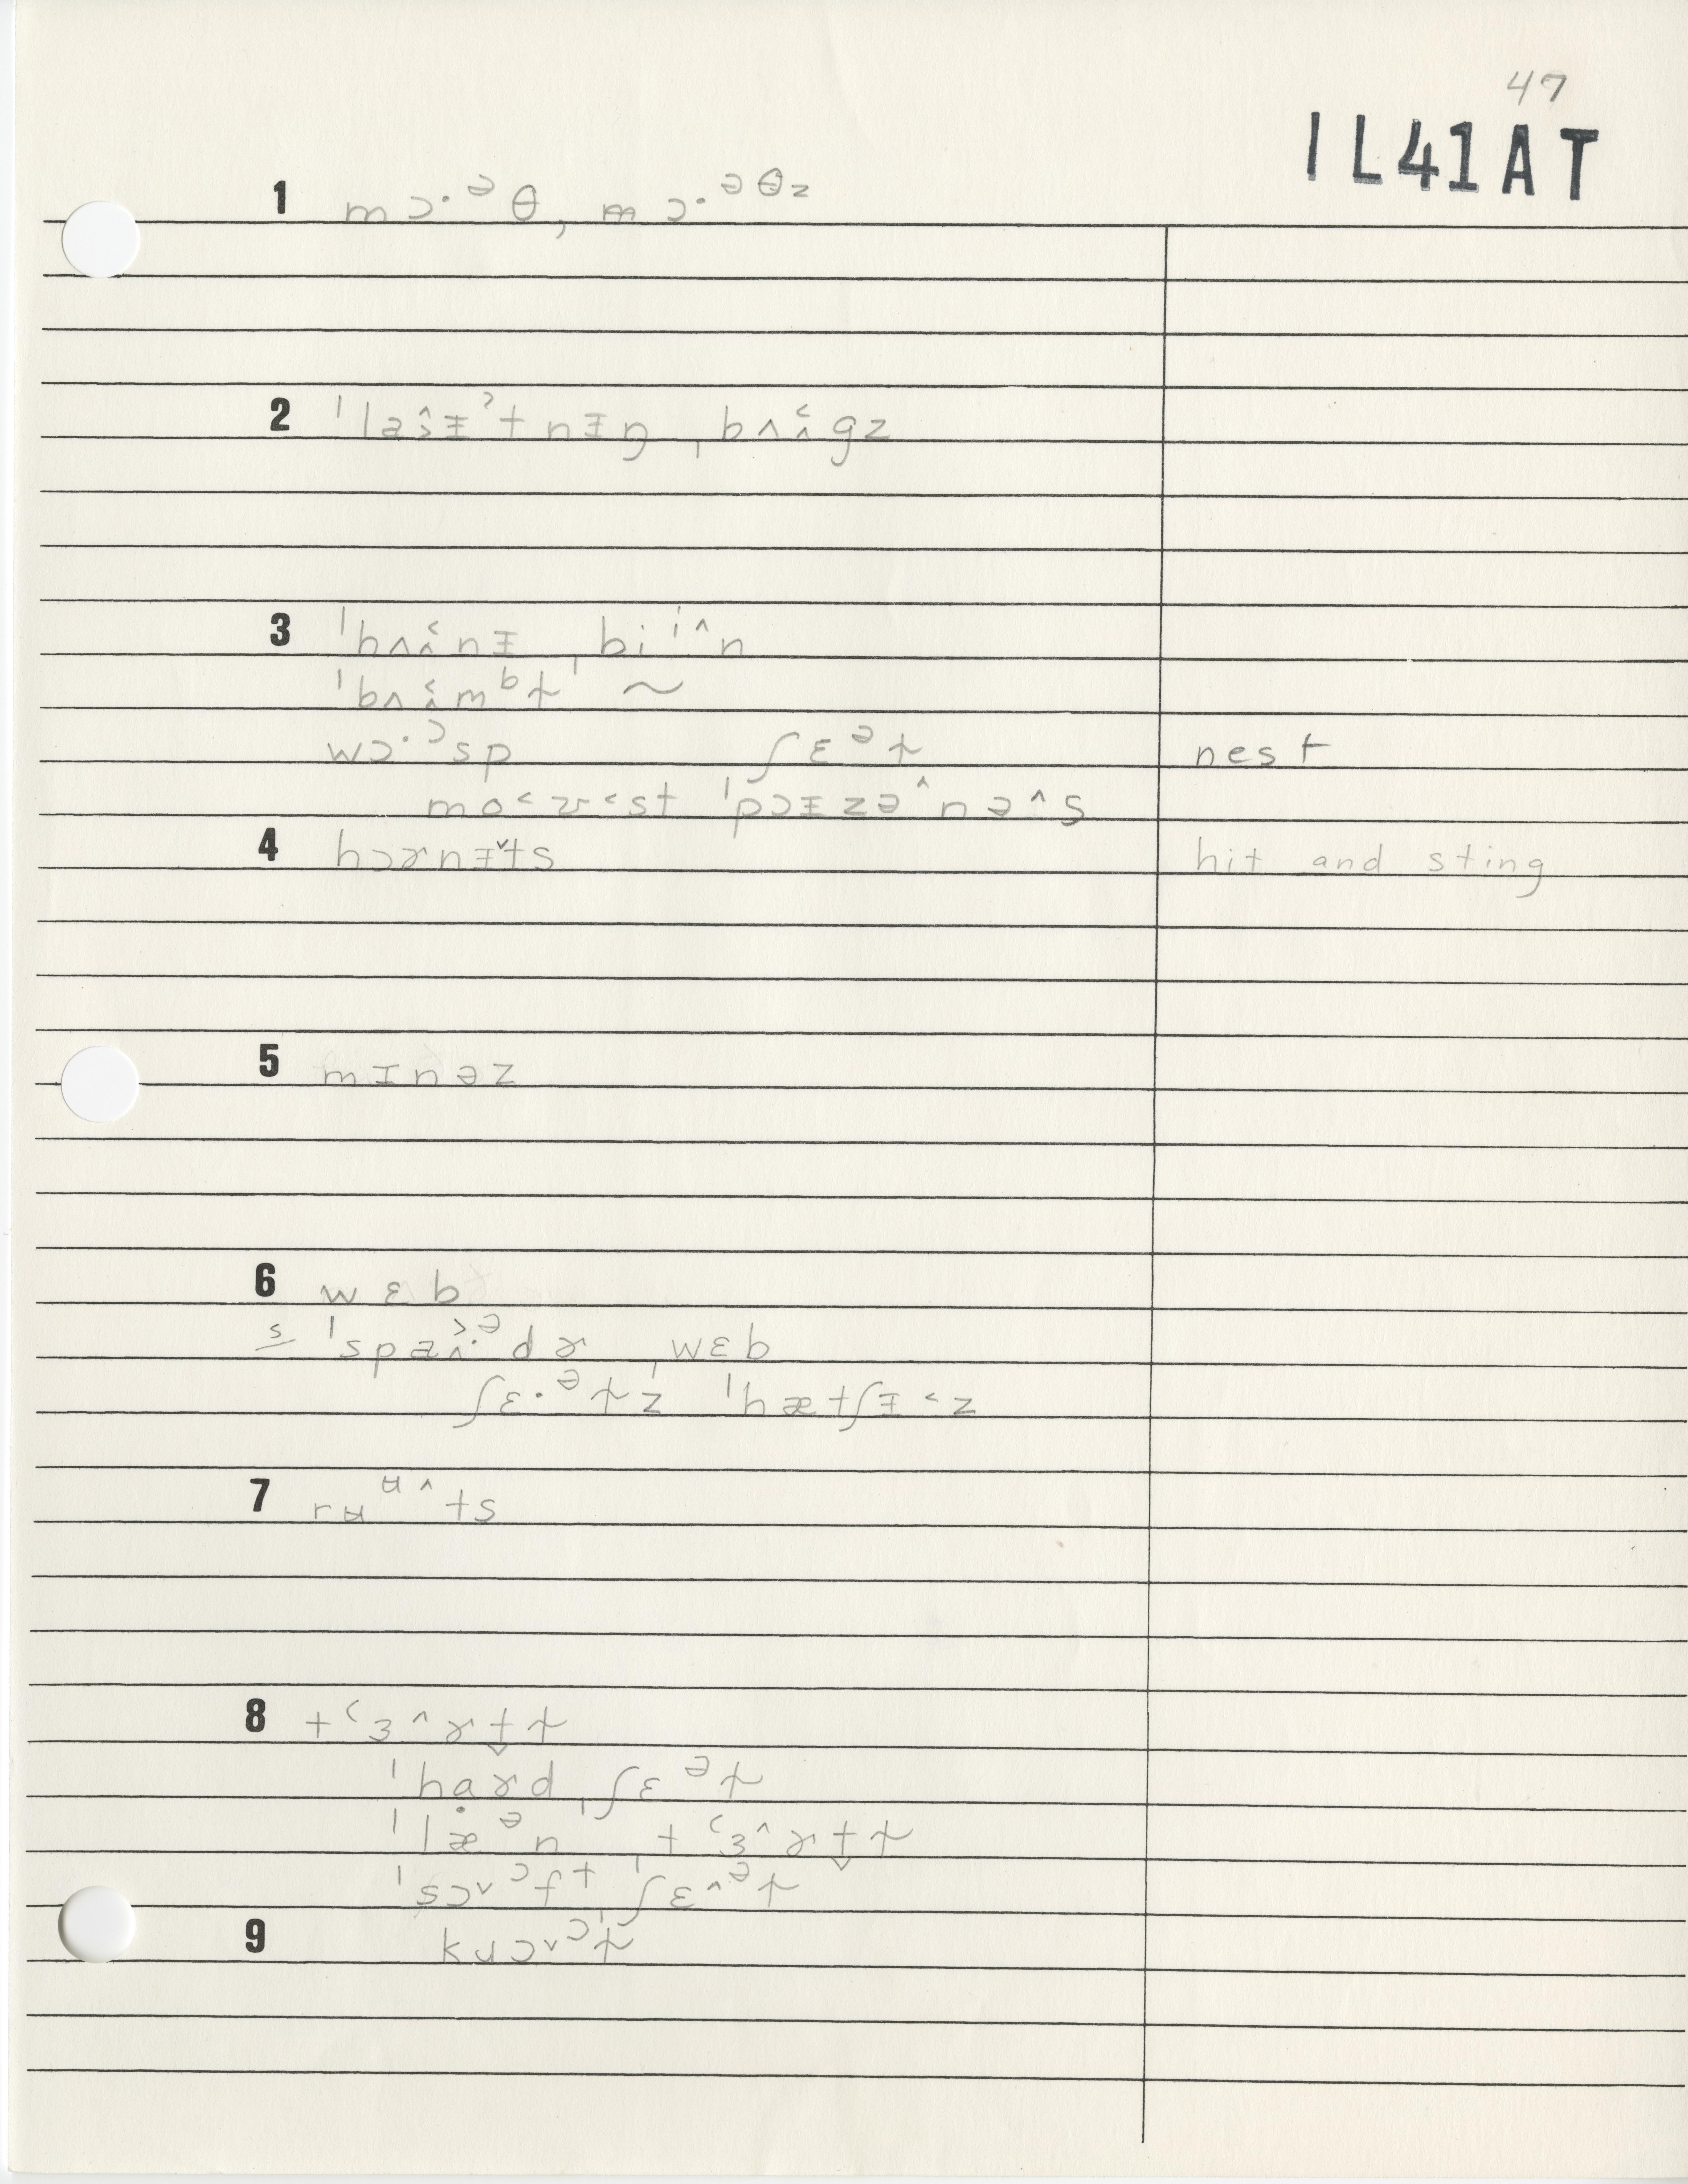 47
1L41AT
1 mɔ·ᵊθ, mɔ·ᵊᶿᶻ
2 ˈlaɪ̵ˀtnɪ̵ŋ ˌbʌʌ̂gz
3 ˈbʌʌ̂nɪ̵ ˌbiⁱ^n
ˈbʌʌ̂mᵇɫ ~
wɔ·ᵓsp ʃɛᵊɫ nest
mo˂ʊ˂st ˈpɔɪ̵zə^nə^s
4 hɔɚnɪ̵ˇts hit and sting
5 mɪnəz
6 wɛb
s ˈspaʌ·ᵊdɚ ˌwɛb
ʃɛ·ᵊɫz ˈhætʃɪ̵˂z
7 rʉᶶ^ts
8 tʻɜ^ɚt̬ɫ
ˈhaɚd ˌʃɛᵊɫ
ˈlæ·ᵊn ˌtʻɜ^ɚt̬ɫ
ˈsɔˇᵓfᵗ ˌʃɛ^ᵊɫ
9 kuɔˇᵓɫ